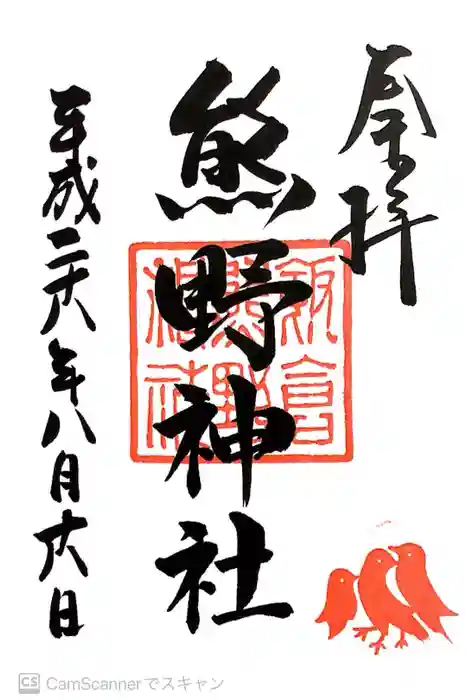 奉拝
熊野神社
飯倉
熊野
神社
平成二十六年八月十六日
CS CamScannerでスキャン